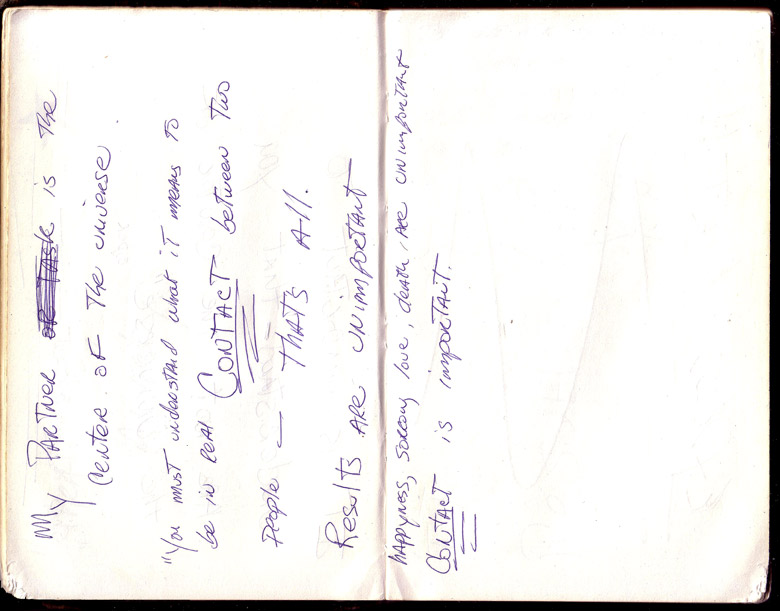 My Partner or Task is the
center of the universe
"You must understaid what it means to
be in real CONTACT between two
people — thats All.
Results are unimportant
happyness, sorrong love, death, are unimportant
CONTACT is important.